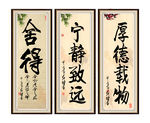 舍得
宁静致远
厚德载物